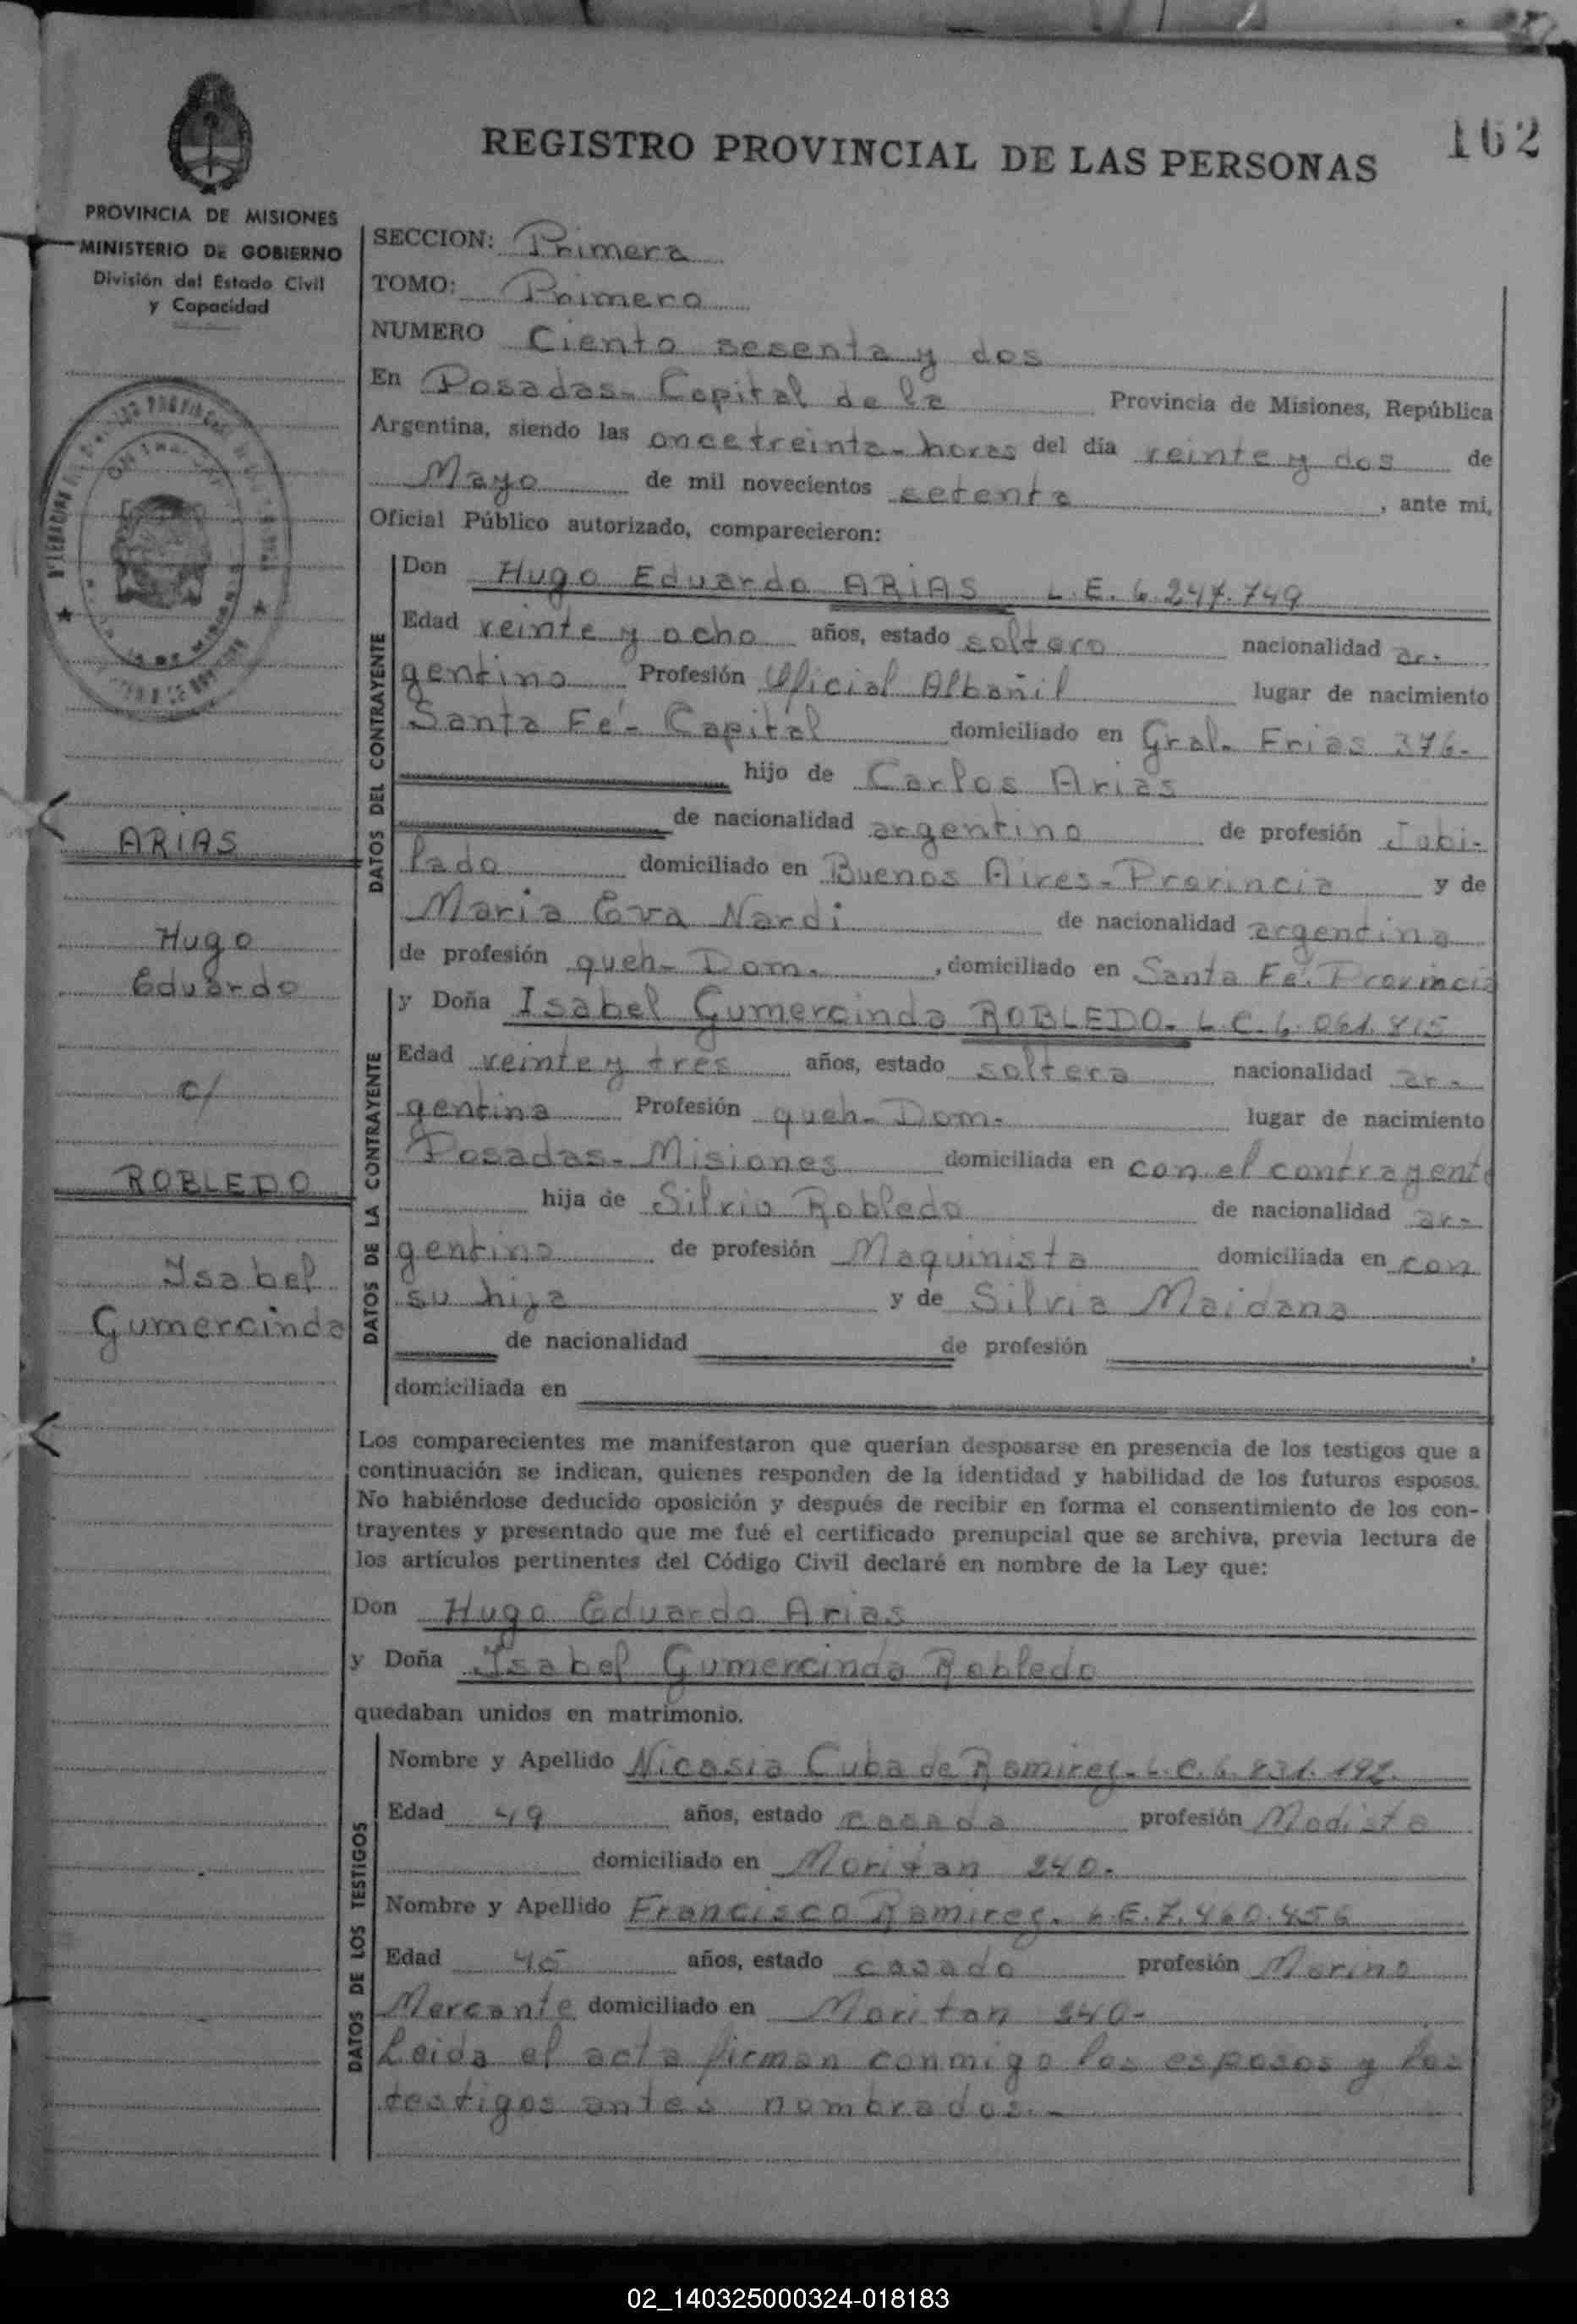 162
REGISTRO PROVINCIAL DE LAS PERSONAS
PROVINCIA DE MISIONES
MINISTERIO DE GOBIERNO
División del Estado Civil
y Capacidad
ARIAS
Hugo
Eduardo
c/
ROBLEDO
Isabel
Gumercinda
SECCION: Primera
TOMO: Primero
NUMERO Ciento sesenta y dos
En Posadas- Capital de la Provincia de Misiones, República
Argentina, siendo las once treinta- horas del día veinte y dos de
Mayo de mil novecientos setenta, ante mi,
Oficial Público autorizado, comparecieron:
DATOS DEL CONTRAYENTE
Don Hugo Eduardo ARIAS L.E. 6.247.749
Edad veinte y ocho años, estado soltero nacionalidad ar-
gentino Profesión Oficial Albañil lugar de nacimiento
Santa Fé- Capital domiciliado en Gral. Frias 376-
hijo de Carlos Arias
de nacionalidad argentino de profesión Jubi-
lado domiciliado en Buenos Aires- Provincia y de
Maria Eva Nardi de nacionalidad argentina
de profesión queh- Dom., domiciliado en Santa Fé. Provincia
DATOS DE LA CONTRAYENTE
y Doña Isabel Gumercinda ROBLEDO- L.C. 6.061.815
Edad veinte y tres años, estado soltera nacionalidad ar-
gentina Profesión queh- Dom. lugar de nacimiento
Posadas- Misiones domiciliada en con el contrayente
hija de Silvio Robledo de nacionalidad ar-
gentino de profesión Maquinista domiciliada en con
su hija y de Silvia Maidana
de nacionalidad de profesión
domiciliada en
Los comparecientes me manifestaron que querían desposarse en presencia de los testigos que a
continuación se indican, quienes responden de la identidad y habilidad de los futuros esposos.
No habiéndose deducido oposición y después de recibir en forma el consentimiento de los con-
trayentes y presentado que me fué el certificado prenupcial que se archiva, previa lectura de
los artículos pertinentes del Código Civil declaré en nombre de la Ley que:
Don Hugo Eduardo Arias
y Doña Isabel Gumercinda Robledo
quedaban unidos en matrimonio.
DATOS DE LOS TESTIGOS
Nombre y Apellido Nicasia Cuba de Ramirez- L.C. 6.831.192.
Edad 49 años, estado casada profesión Modista
domiciliado en Moritan 240-
Nombre y Apellido Francisco Ramirez. L.E. 7.460.456
Edad 45 años, estado casado profesión Marino
Mercante domiciliado en Moritan 240-
Leida el acta firman conmigo los esposos y los
testigos antes nombrados.-
02_140325000324-018183